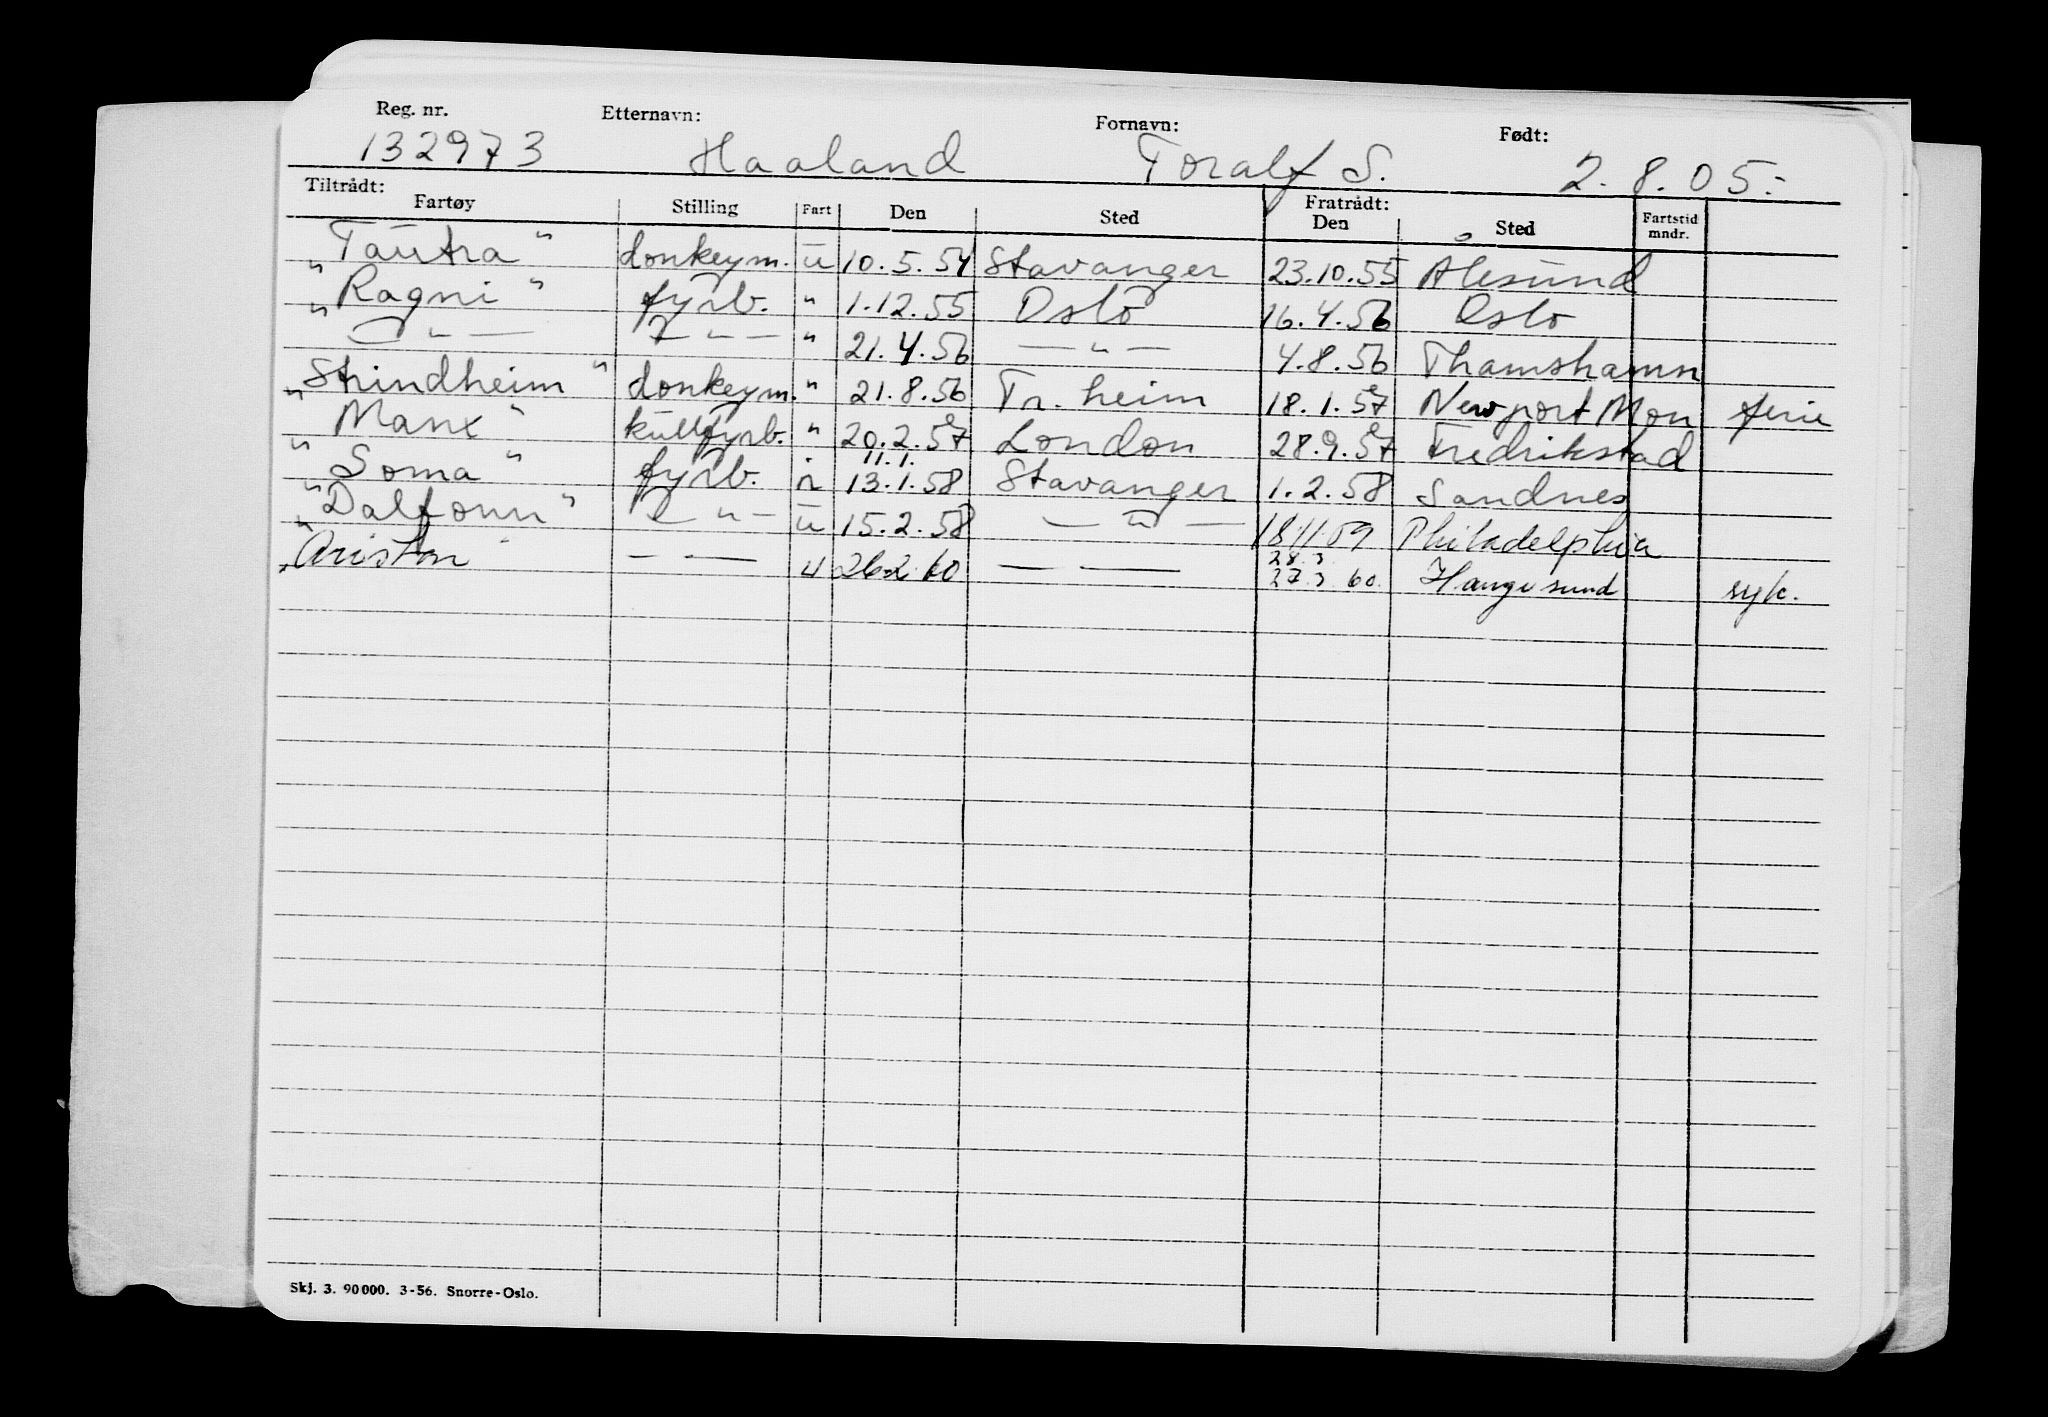 Reg. nr. Etternavn: Fornavn: Født:
132973 Haaland Toralf S. 2.8.05.-
Tiltrådt: Fratrådt:
Fartøy Stilling Fart Den Sted Den Sted Fartstid mndr.
"Tautra" donkeym. u 10.5.54 Stavanger 23.10.55 Ålesund
"Ragni" fyrb. " 1.12.55 Oslo 16.4.56 Oslo
— " — — " — " 21.4.56 — " — 4.8.56 Thamshamn
"Strindheim" donkeym. " 21.8.56 Tr.heim 18.1.57 Newport Mon ferie
"Manx" kullfyrb. " 20.2.57 London 28.9.57 Fredrikstad
11.1.
"Soma" fyrb. i 13.1.58 Stavanger 1.2.58 Sandnes
"Dalfonn" — " — u 15.2.58 — " — 18/11 59 Philadelphia
28.3.
"Ariston" — — u 26.2.60 — — 27.3.60. Haugesund syk.
Skj. 3. 90000. 3-56. Snorre-Oslo.